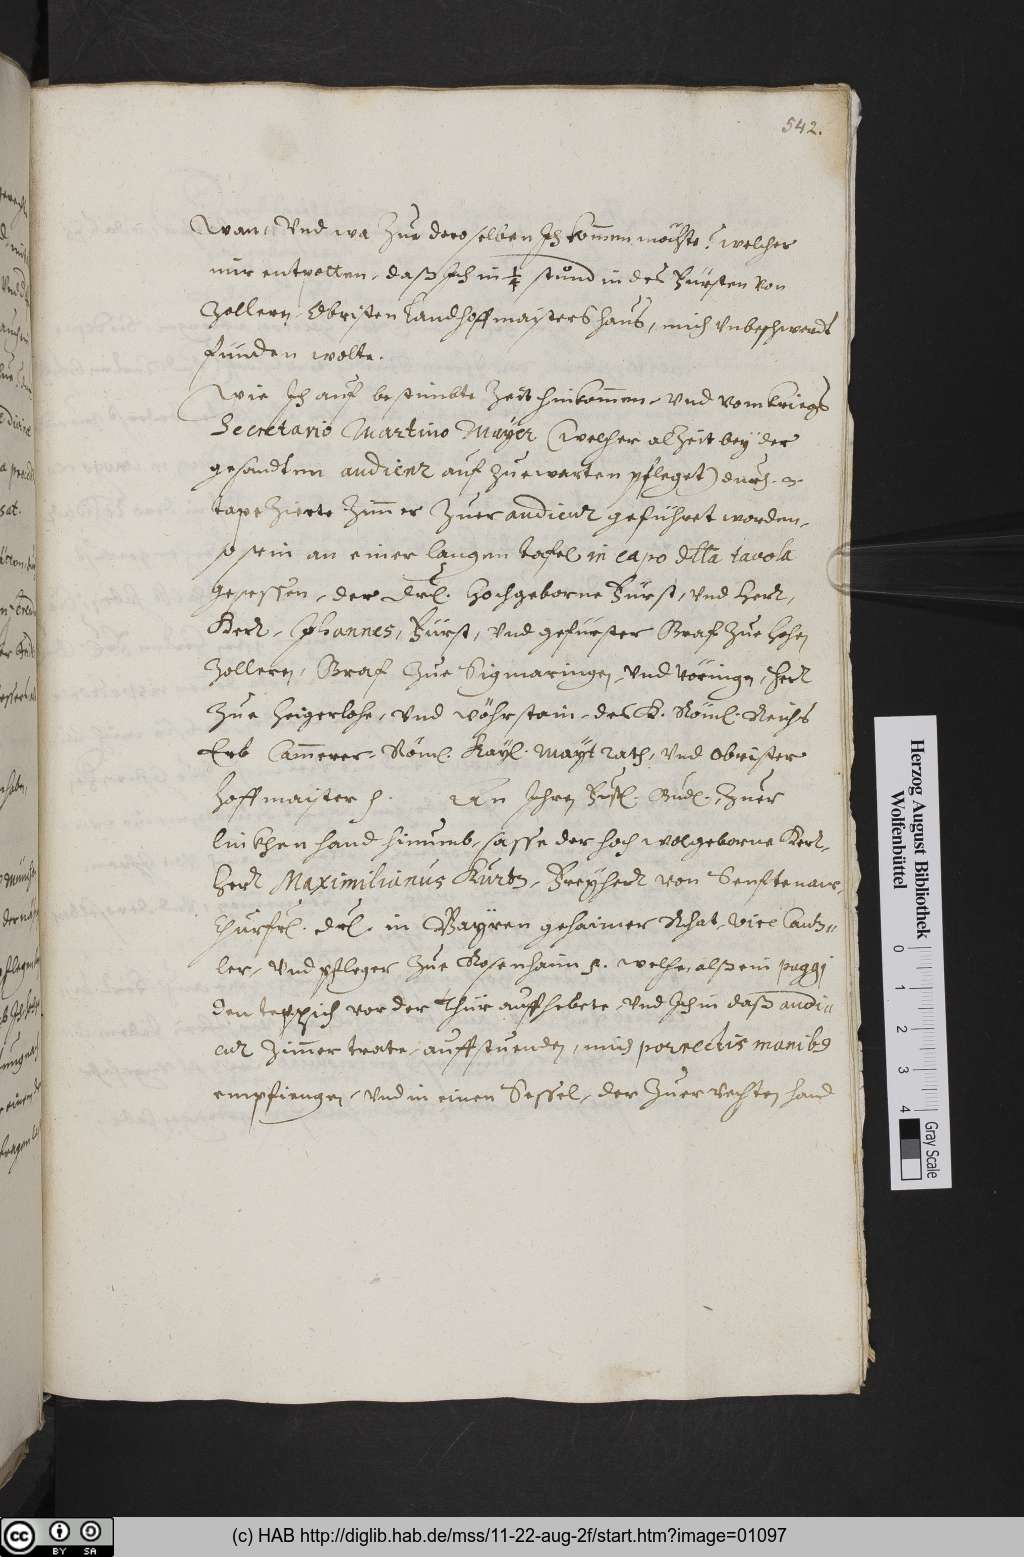 542.
wan, Vnd wa Zue deroselben Ich kommen möchte? welcher
mir entpotten, daß Ich in ¼ stund in des Fürsten von
Zollern, Obristen Landhoffmaisters haus, mich vnbeschwerdt
finden wolte.
Wie Ich auf bestimbte Zeit hinkommen, Vnd vom Kriegs
Secretario Martino Mayer (welcher alzeit bey der
gesandten audienz auf Zuewarten pfleget) durch 3.
tapezierte Zimmer Zuer audienz geführet worden,
so sein an einer langen tafel in capo dlla tavola
gesessen, der Drl. Hochgeborne Fürst, Vnd Herr,
Herr, Johannes, Fürst, Vnd gefürster Graf Zue Hohen
Zollern, Graf Zue Sigmaringen, Vnd Vöringen, Herr
Zue Heigerlohe, Vnd Wöhrstain, des H. Röml. Reichs
Erb Cammerer, Röml. Kayl. Mayt Rath, Vnd Obrister
Hoffmaister p. An Ihren Fürstl. Gndl. Zuer
linkhen hand hinumb, sasse der hoch wolgeborne Herr,
Herr Maximilianus Kurtz, Freyherr von Senftenaw,
Churfrl. Drl. in Bayren gehaimer Rhat, Vice Cantz=
ler, Vnd pfleger Zue Rosenhaim p. welche, alß ein paggj
den teppich vor der Thür auffhebete, Vnd Ich in daß audi
enz Zimmer trate, auffstuenden, mich porrectis manibus
empfiengen, Vnd in einen Sessel, der Zuer rechten hand
Herzog August Bibliothek
Wolfenbüttel
0 1 2 3 4
Gray Scale
(c) HAB http://diglib.hab.de/mss/11-22-aug-2f/start.htm?image=01097